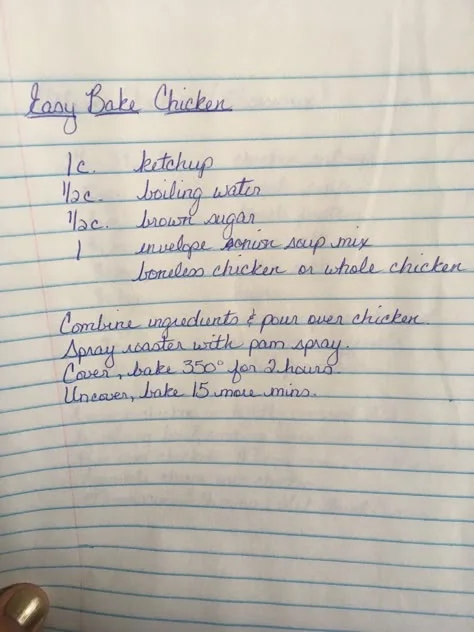 Easy Bake Chicken
1c. ketchup
1/2c. boiling water
1/2c. brown sugar
1 envelope onion soup mix
boneless chicken or whole chicken
Combine ingredients & pour over chicken.
Spray roaster with pam spray.
Cover, bake 350° for 2 hours.
Uncover, bake 15 more mins.